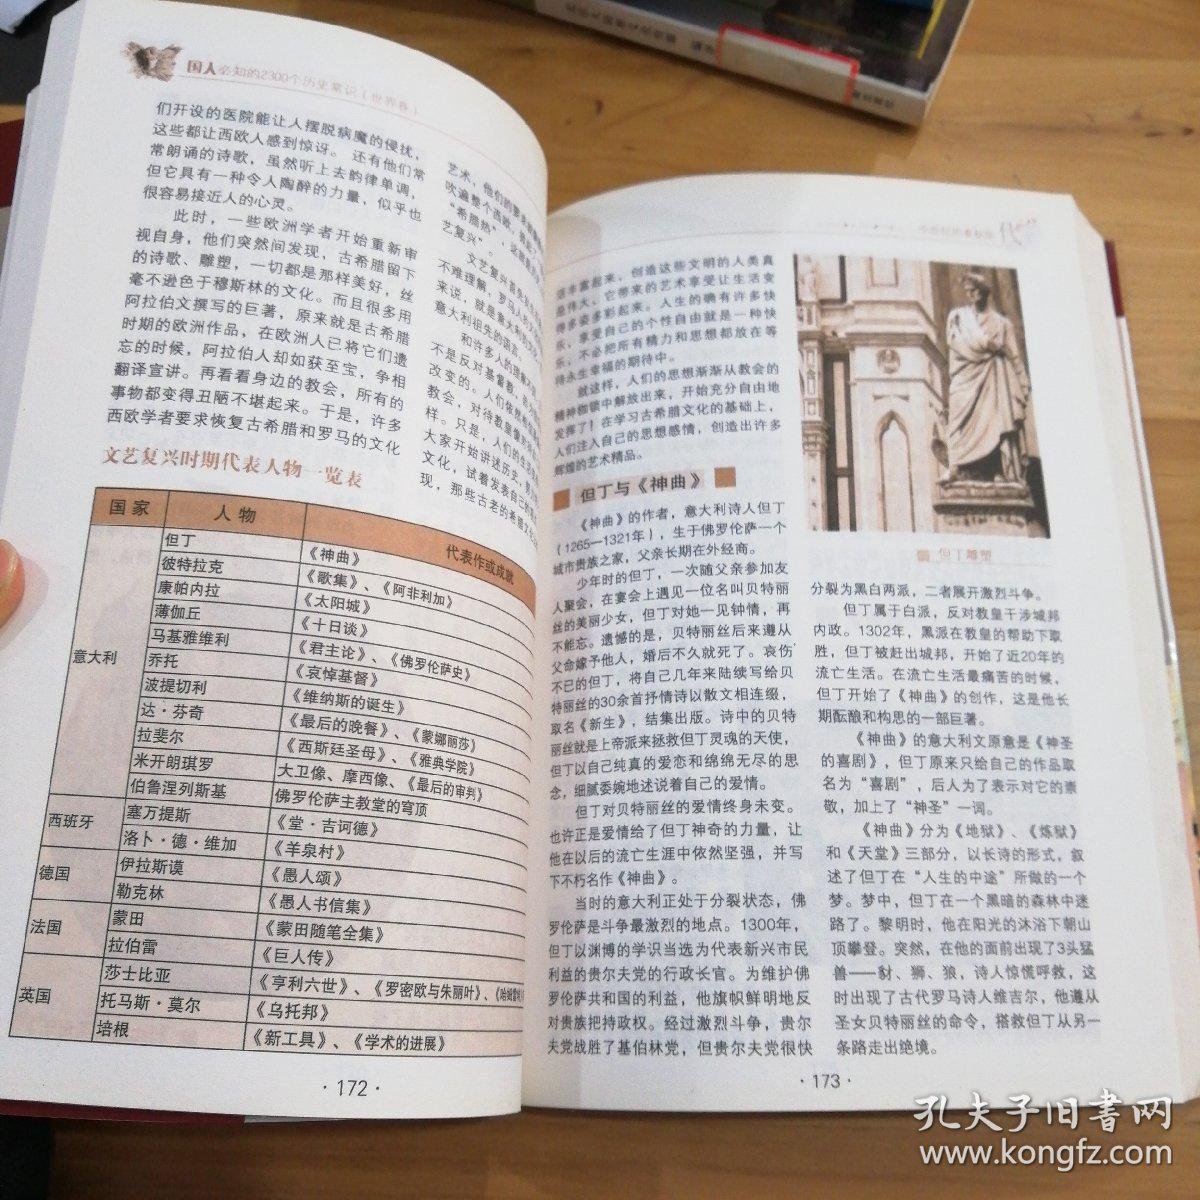 国人必知的2300个历史常识(世界卷)
们开设的医院能让人摆脱病魔的侵扰，
这些都让西欧人感到惊讶。还有他们常
常朗诵的诗歌，虽然听上去韵律单调，
但它具有一种令人陶醉的力量，似乎也
很容易接近人的心灵。
此时，一些欧洲学者开始重新审
视自身，他们突然间发现，古希腊留下
的诗歌、雕塑，一切都是那样美好，丝
毫不逊色于穆斯林的文化。而且很多用
阿拉伯文撰写的巨著，原来就是古希腊
时期的欧洲作品，在欧洲人已将它们遗
忘的时候，阿拉伯人却如获至宝，争相
翻译宣讲。再看看身边的教会，所有的
事物都变得丑陋不堪起来。于是，许多
西欧学者要求恢复古希腊和罗马的文化
艺术，他们的要求
吹遍整个西欧，掀起了
“希腊热”，
艺复兴”。
文艺复兴
不难理解，罗马人的
来说，就是意大利
意大利祖先的语言。
和许多人的理解
不是反对基督教，
改变的。人们依然
教会，对待教皇像
样。只是，人们的生活
大家开始讲述历史，
文化，试着发表自己的
现，那些古老的希腊
文艺复兴时期代表人物一览表
国家 人物 代表作或成就
意大利 但丁 《神曲》
彼特拉克 《歌集》、《阿非利加》
康帕内拉 《太阳城》
薄伽丘 《十日谈》
马基雅维利 《君主论》、《佛罗伦萨史》
乔托 《哀悼基督》
波提切利 《维纳斯的诞生》
达·芬奇 《最后的晚餐》、《蒙娜丽莎》
拉斐尔 《西斯廷圣母》、《雅典学院》
米开朗琪罗 大卫像、摩西像、《最后的审判》
伯鲁涅列斯基 佛罗伦萨主教堂的穹顶
西班牙 塞万提斯 《堂·吉诃德》
洛卜·德·维加 《羊泉村》
德国 伊拉斯谟 《愚人颂》
勒克林 《愚人书信集》
法国 蒙田 《蒙田随笔全集》
拉伯雷 《巨人传》
英国 莎士比亚 《亨利六世》、《罗密欧与朱丽叶》、
托马斯·莫尔 《乌托邦》
培根 《新工具》、《学术的进展》
·172·
活丰富起来，创造这些文明的人类真
是伟大，它带来的艺术享受让生活变
得多姿多彩起来。人生的确有许多快
乐，享受自己的个性自由就是一种快
乐，不必把所有精力和思想都放在等
待永生幸福的期待中。
就这样，人们的思想渐渐从教会的
精神枷锁中解放出来，开始充分自由地
发挥了！在学习古希腊文化的基础上，
人们注入自己的思想感情，创造出许多
辉煌的艺术精品。
但丁与《神曲》
《神曲》的作者，意大利诗人但丁
（1265—1321年），生于佛罗伦萨一个
城市贵族之家，父亲长期在外经商。
少年时的但丁，一次随父亲参加友
人聚会，在宴会上遇见一位名叫贝特丽
丝的美丽少女，但丁对她一见钟情，再
不能忘。遗憾的是，贝特丽丝后来遵从
父命嫁予他人，婚后不久就死了。哀伤
不已的但丁，将自己几年来陆续写给贝
特丽丝的30余首抒情诗以散文相连缀，
取名《新生》，结集出版。诗中的贝特
丽丝就是上帝派来拯救但丁灵魂的天使，
但丁以自己纯真的爱恋和绵绵无尽的思
念，细腻委婉地述说着自己的爱情。
但丁对贝特丽丝的爱情终身未变。
也许正是爱情给了但丁神奇的力量，让
他在以后的流亡生涯中依然坚强，并写
下不朽名作《神曲》。
当时的意大利正处于分裂状态，佛
罗伦萨是斗争最激烈的地点。1300年，
但丁以渊博的学识当选为代表新兴市民
利益的贵尔夫党的行政长官。为维护佛
罗伦萨共和国的利益，他旗帜鲜明地反
对贵族把持政权。经过激烈斗争，贵尔
夫党战胜了基伯林党，但贵尔夫党很快
但丁雕塑
分裂为黑白两派，二者展开激烈斗争。
但丁属于白派，反对教皇干涉城邦
内政。1302年，黑派在教皇的帮助下取
胜，但丁被赶出城邦，开始了近20年的
流亡生活。在流亡生活最痛苦的时候，
但丁开始了《神曲》的创作，这是他长
期酝酿和构思的一部巨著。
《神曲》的意大利文原意是《神圣
的喜剧》，但丁原来只给自己的作品取
名为“喜剧”，后人为了表示对它的崇
敬，加上了“神圣”一词。
《神曲》分为《地狱》、《炼狱》
和《天堂》三部分，以长诗的形式，叙
述了但丁在“人生的中途”所做的一个
梦。梦中，但丁在一个黑暗的森林中迷
路了。黎明时，他在阳光的沐浴下朝山
顶攀登。突然，在他的面前出现了3头猛
兽——豹、狮、狼，诗人惊慌呼救，这
时出现了古代罗马诗人维吉尔，他遵从
圣女贝特丽丝的命令，搭救但丁从另一
条路走出绝境。
·173·
孔夫子旧书网
www.kongfz.com